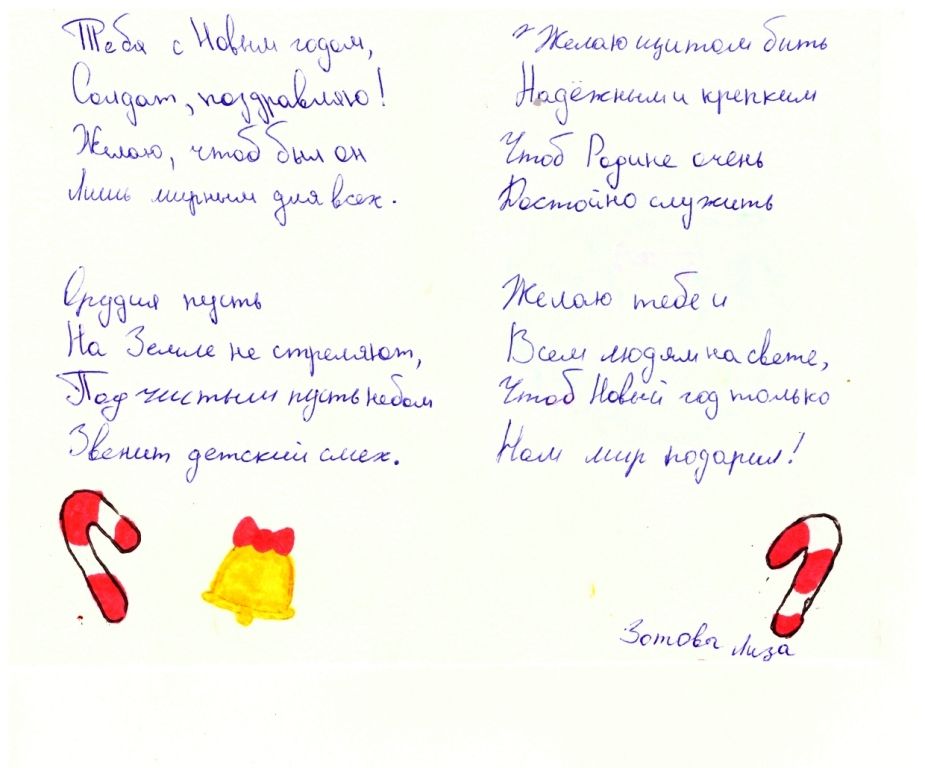 Тебя с Новым годом,
Солдат, поздравляю!
Желаю, чтоб был он
Лишь мирным для всех.
Орудия пусть
На Земле не стреляют,
Под чистым пусть небом
Звенит детский смех.
Желаю щитом быть
Надёжным и крепким
Чтоб Родине очень
Достойно служить
Желаю тебе и
Всем людям на свете,
Чтоб Новый год только
Нам мир подарил!
Зотова Лиза